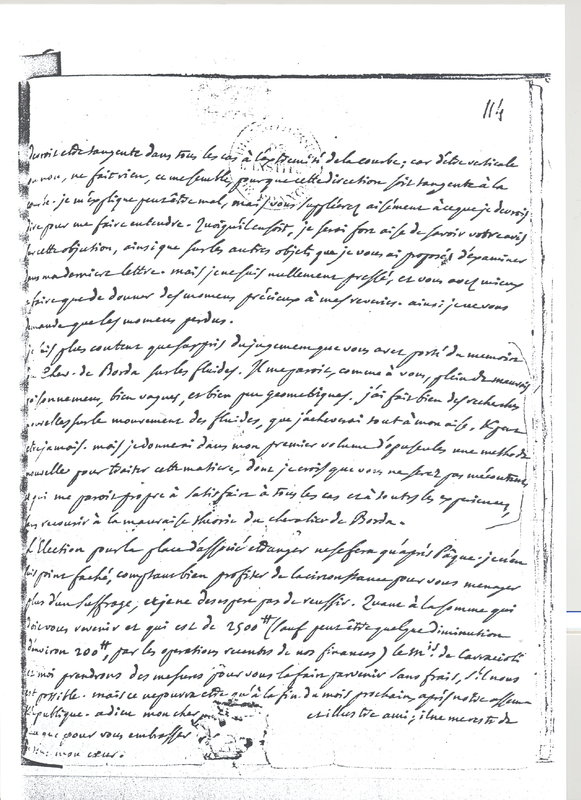 114
devroit etre tangente dans tous les cas à l'extremité de la courbe; car d'etre verticale
ou non, ne fait rien, ce me semble, pour que cette direction soit tangente à la
courbe. je m'explique peut être mal, mais vous suppléerez aisément à ce que je devrois
dire pour me faire entendre. Quoiqu'il en soit, je serai fort aise de savoir votre avis
sur cette objection, ainsi que sur les autres objets que je vous ai proposés d'examiner
dans ma derniere lettre. mais je ne suis nullement pressé, et vous avez mieux
à faire que de donner des momens précieux à mes reveries. ainsi je ne vous
demande que les momens perdus.
je suis plus content que surpris du jugement que vous avez porté du memoire
du Chev. de Borda sur les fluides. Il me paroit, comme à vous, plein de mauvais
raisonnemens, bien vagues, et bien peu geometriques. j'ai fait bien des recherches
nouvelles sur le mouvement des fluides, que j'acheverai tout à mon aise,
jamais. mais je donnerai dans mon premier volume d'opuscules une methode
nouvelle pour traiter cette matiere, dont je crois que vous ne serez pas mécontent
et qui me paroit propre à satisfaire à tous les cas et à toutes les experiences,
sans recourir à la mauvaise theorie du chevalier de Borda.
L'Election pour la place d'associé etranger ne se fera qu'après Pâque. je n'en
suis point faché, comptant bien profiter de la circonstance pour vous menager
plus d'un suffrage, et je ne desespere pas de reussir. Quant à la somme qui
doit vous revenir et qui est de 2500 ₶ (sauf peut être quelque diminution
d'environ 200 ₶, par les operations recentes de nos finances) le Mis de Carracioli
et moi prendrons des mesures pour vous la faire parvenir sans frais, s'il nous
est possible. mais ce ne pourra etre qu'à la fin du mois prochain, après notre assemblée
publique. adieu mon cher et illustre ami; il ne me reste de
que pour vous embrasser
mon cœur.